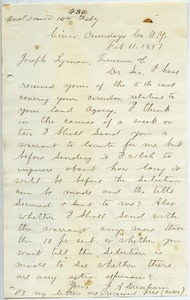 Cicero, Onondaga Co N.Y.
Feb 11. 1857
Joseph Lyman, Treasurer &c
Dr Sir, I have
received yours of the 5th inst
covering your circular, relative to
your Land Agency, I think
in the course of a week or
two I Shall Send you a
warrant to locate for me, but
before Sending it I wish to
inquire about how long it
will be before the selection
can be made and the title
Secured & sent to me? Also
whether I Shall Send with
the warrant any more than
the 10 pr cent. or whether you
wait till the selection is
made & also whether there
are any extra expenses?
Yours J A
P.S. my letters are received free (over)